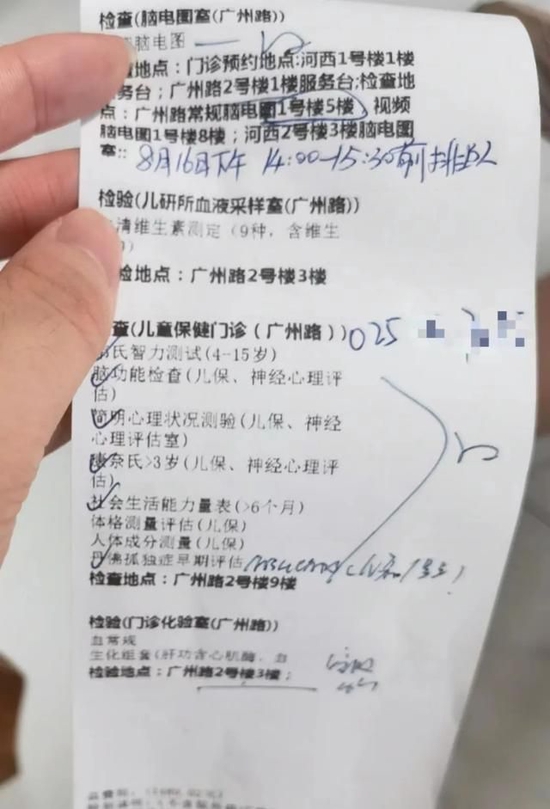 检查(脑电图室(广州路))
脑电图
地点：门诊预约地点:河西1号楼1楼
务台；广州路2号楼1楼服务台;检查地
点：广州路常规脑电图1号楼5楼，视频
脑电图1号楼8楼；河西2号楼3楼脑电图
室::
8月16日下午 14:00-15:30前
检验(儿研所血液采样室(广州路))
清维生素测定（9种，含维生
验地点：广州路2号楼3楼
查(儿童保健门诊（广州路）)
025
氏智力测试(4-15岁)
脑功能检查(儿保、神经心理评
估)
简明心理状况测验(儿保、神经
心理评估室)
奈氏>3岁(儿保、神经心理评
估)
社会生活能力量表(>6个月)
体格测量评估(儿保)
人体成分测量(儿保)
丹佛孤独症早期评估
检查地点：广州路2号楼9楼
检验(门诊化验室(广州路))
血常规
生化组套(肝功含心肌酶、血
检验地点：广州路2号楼3楼；